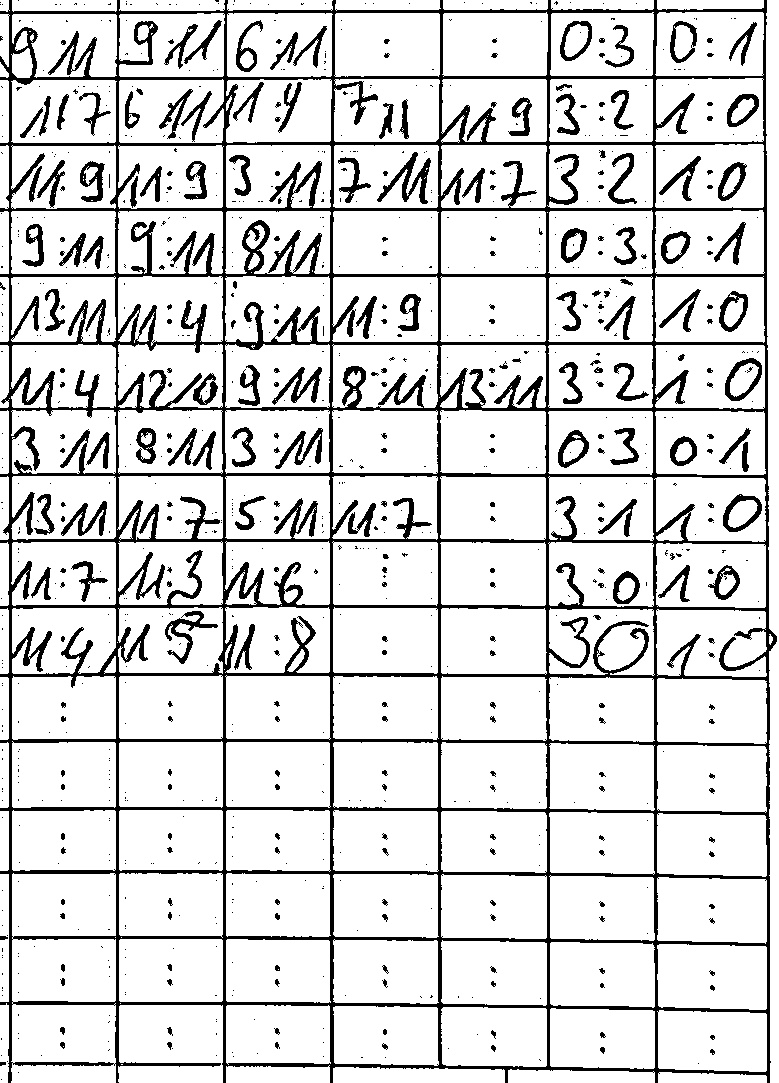 9:11 9:11 6:11 : : 0:3 0:1
11:7 6:11 11:4 7:11 11:9 3:2 1:0
11:9 11:9 3:11 7:11 11:7 3:2 1:0
9:11 9:11 8:11 : : 0:3 0:1
13:11 11:4 9:11 11:9 : 3:1 1:0
11:4 12:10 9:11 8:11 13:11 3:2 1:0
3:11 8:11 3:11 : : 0:3 0:1
13:11 11:7 5:11 11:7 : 3:1 1:0
11:7 11:3 11:6 : : 3:0 1:0
11:4 11:5 11:8 : : 3:0 1:0
: : : : : : :
: : : : : : :
: : : : : : :
: : : : : : :
: : : : : : :
: : : : : : :